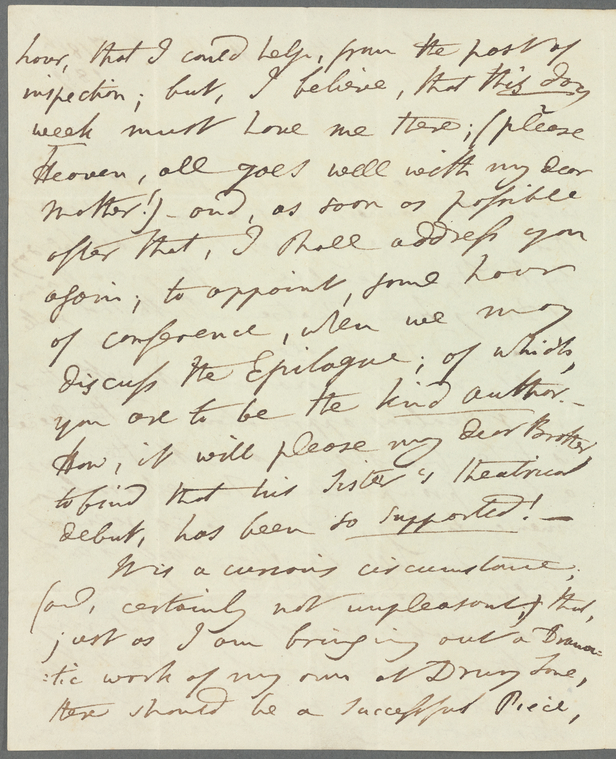 hour, that I could help, from the post of
inspection; but, I believe, that this day
week must have me there; (please
Heaven, all goes well with my dear
Mother!) - and, as soon as possible
after that, I shall address you
again; to appoint, some hour
of conference, when we may
discuss the Epilogue; of which,
you are to be the kind author. -
How, it will please my dear Brother,
to find that his Sister's theatrical
debut, has been so supported! -
It is a curious circumstance,
(and, certainly not unpleasant,) that,
just as I am bringing out a Drama=
=tic work of my own at Drury Lane,
there should be a successful Piece,